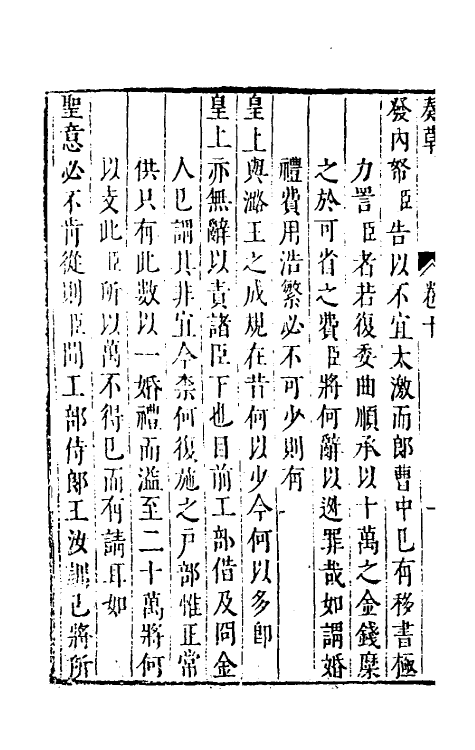 奏草 卷十
發內帑臣告以不宜太激而郎曹中已有移書極
力詈臣者若復委曲順承以十萬之金錢糜
之於可省之費臣將何辭以逃罪哉如謂婚
禮費用浩繁必不可少則有
皇上與潞王之成規在昔何以少今何以多卽
皇上亦無辭以責諸臣下也目前工部借及冏金
人已謂其非宜今柰何復施之戶部惟正常
供只有此數以一婚禮而溢至二十萬將何
以支此臣所以萬不得已而有請耳如
聖意必不肯從則臣問工部侍郎王汝訓已將所